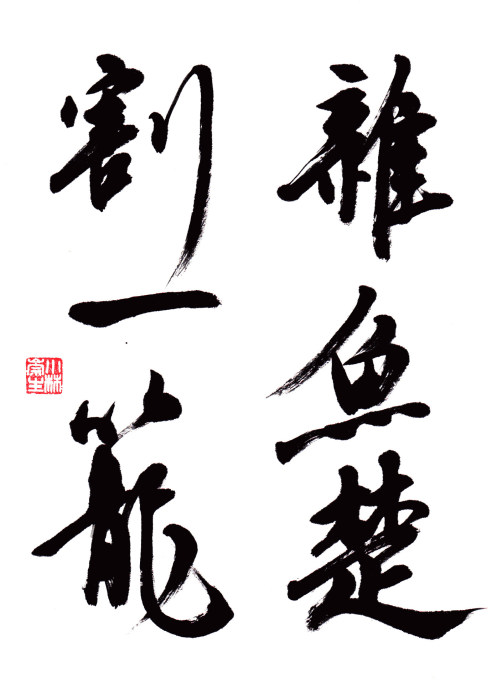 雜魚楚
割一籠
小林
斎生